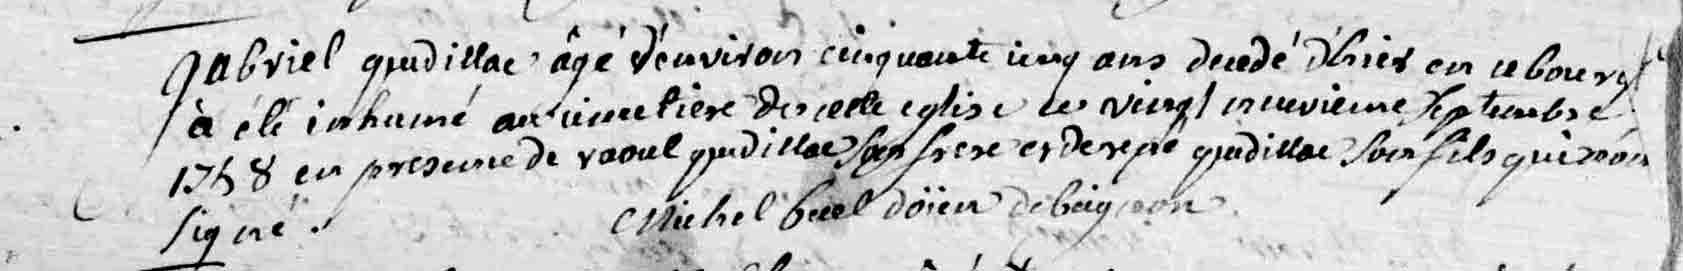 Gabriel gudillac âgé d'environ cinquante cinq ans decedé d'hier en ce bourg
à été inhumé au cimetiere de cette eglise ce vingt neuvieme septembre
1758 en presence de raoul gudillac son frere et de rené gudillac son fils qui n'ont
signé. Michel buel doïen de baignon